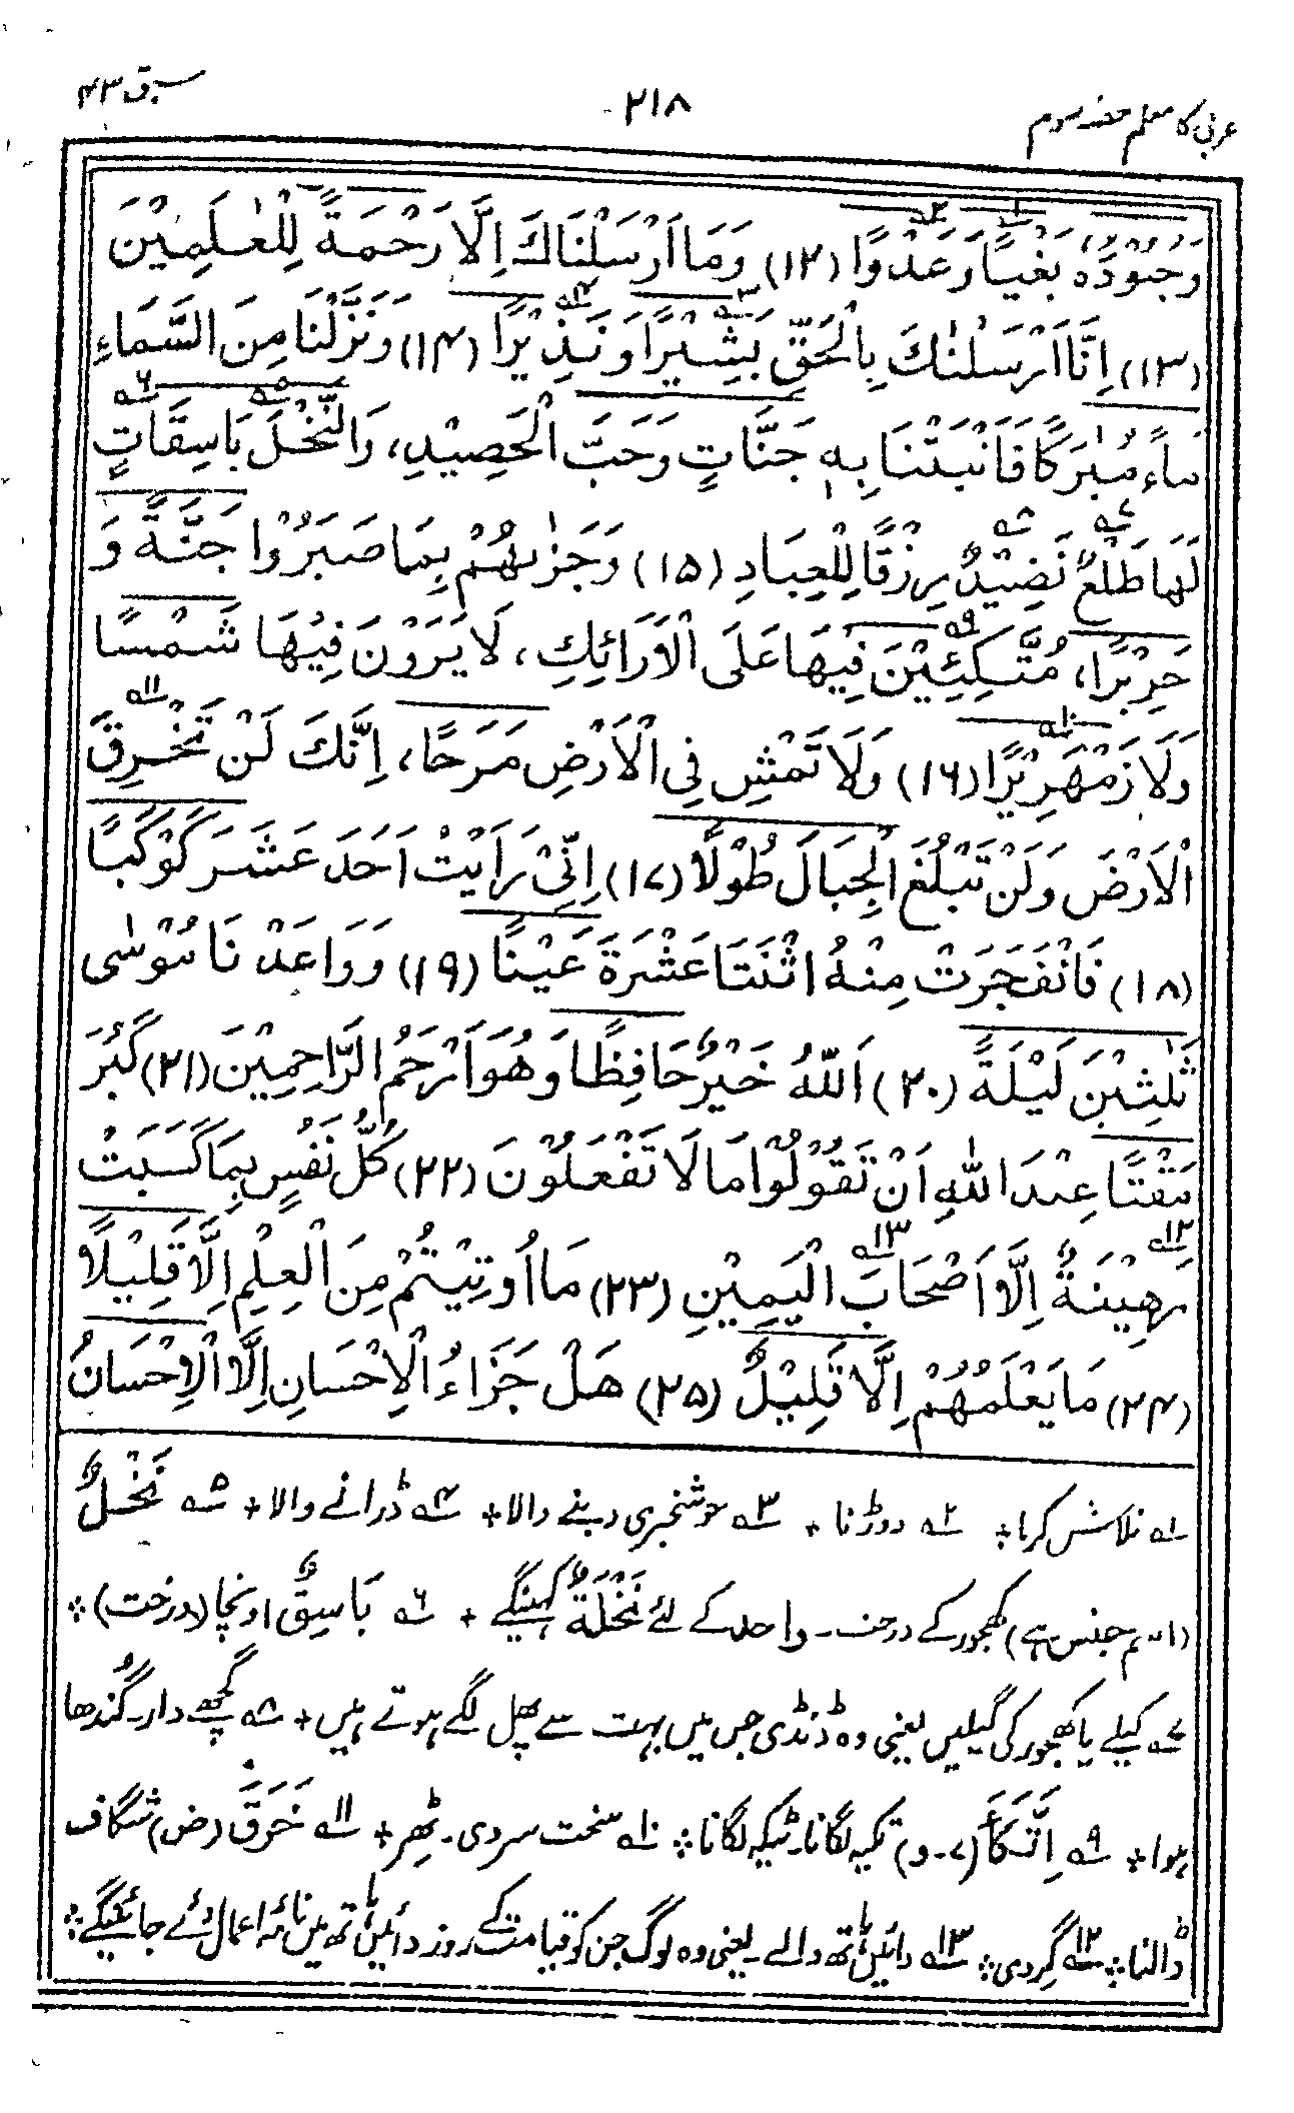 عربی کا معلم حصہ سوم
۲۱۸
سبق ۴۳
وَجُنُوْدُهٗ بَغْيًا وَعَدْوًا (۱۲) وَمَا اَرْسَلْنَاكَ اِلَّا رَحْمَةً لِّلْعٰلَمِيْنَ
(۱۳) اِنَّا اَرْسَلْنٰكَ بِالْحَقِّ بَشِيْرًا وَنَذِيْرًا (۱۴) وَنَزَّلْنَا مِنَ السَّمَاءِ
مَاءً مُّبٰرَكًا فَاَنْبَتْنَا بِهٖ جَنَّاتٍ وَحَبَّ الْحَصِيْدِ، وَالنَّخْلَ بَاسِقَاتٍ
لَهَا طَلْعٌ نَضِيْدٌ رِزْقًا لِلْعِبَادِ (۱۵) وَجَزٰىهُمْ بِمَا صَبَرُوْا جَنَّةً وَ
حَرِيْرًا، مُتَّكِئِيْنَ فِيْهَا عَلَى الْاَرَائِكِ، لَا يَرَوْنَ فِيْهَا شَمْسًا
وَلَا زَمْهَرِيْرًا (۱۶) وَلَا تَمْشِ فِى الْاَرْضِ مَرَحًا، اِنَّكَ لَنْ تَخْرِقَ
الْاَرْضَ وَلَنْ تَبْلُغَ الْجِبَالَ طُوْلًا (۱۷) اِنِّىْ رَاَيْتُ اَحَدَ عَشَرَ كَوْكَبًا
(۱۸) فَانْفَجَرَتْ مِنْهُ اثْنَتَا عَشْرَةَ عَيْنًا (۱۹) وَوَاعَدْنَا مُوْسٰى
ثَلٰثِيْنَ لَيْلَةً (۲۰) اَللّٰهُ خَيْرٌ حَافِظًا وَهُوَ اَرْحَمُ الرَّاحِمِيْنَ (۲۱) كَبُرَ
مَقْتًا عِنْدَ اللّٰهِ اَنْ تَقُوْلُوْا مَا لَا تَفْعَلُوْنَ (۲۲) كُلُّ نَفْسٍ بِمَا كَسَبَتْ
رَهِيْنَةٌ اِلَّا اَصْحَابَ الْيَمِيْنِ (۲۳) مَا اُوتِيْتُمْ مِنَ الْعِلْمِ اِلَّا قَلِيْلًا
(۲۴) مَا يَعْلَمُهُمْ اِلَّا قَلِيْلٌ (۲۵) هَلْ جَزَاءُ الْاِحْسَانِ اِلَّا الْاِحْسَانُ
۱ تلاش کرنا ÷ ۲ دوڑنا ÷ ۳ خوشخبری دینے والا ÷ ۴ ڈرانے والا ÷ ۵ نَخْلٌ
(اسم جنس ہے) کھجور کے درخت۔ واحد کے لئے نَخْلَةٌ کہینگے ÷ ۶ بَاسِقٌ اونچا (درخت) ÷
۷ کیلے یا کھجور کی گیلیں یعنی وہ ڈنڈی جس میں بہت سے پھل لگے ہوتے ہیں ÷ ۸ گچھے دار۔ گُندھا
ہوا ÷ ۹ اِتَّكَأَ (۷۔و) تکیہ لگانا۔ ٹیکہ لگانا ÷ ۱۰ سخت سردی۔ ٹھِر ÷ ۱۱ خَرَقَ (ض) شگاف
ڈالنا ÷ ۱۲ گِردی ÷ ۱۳ دائیں ہاتھ والے۔ یعنی وہ لوگ جن کو قیامت کے روز دائیں ہاتھ میں نامۂ اعمال دئے جائینگے ÷